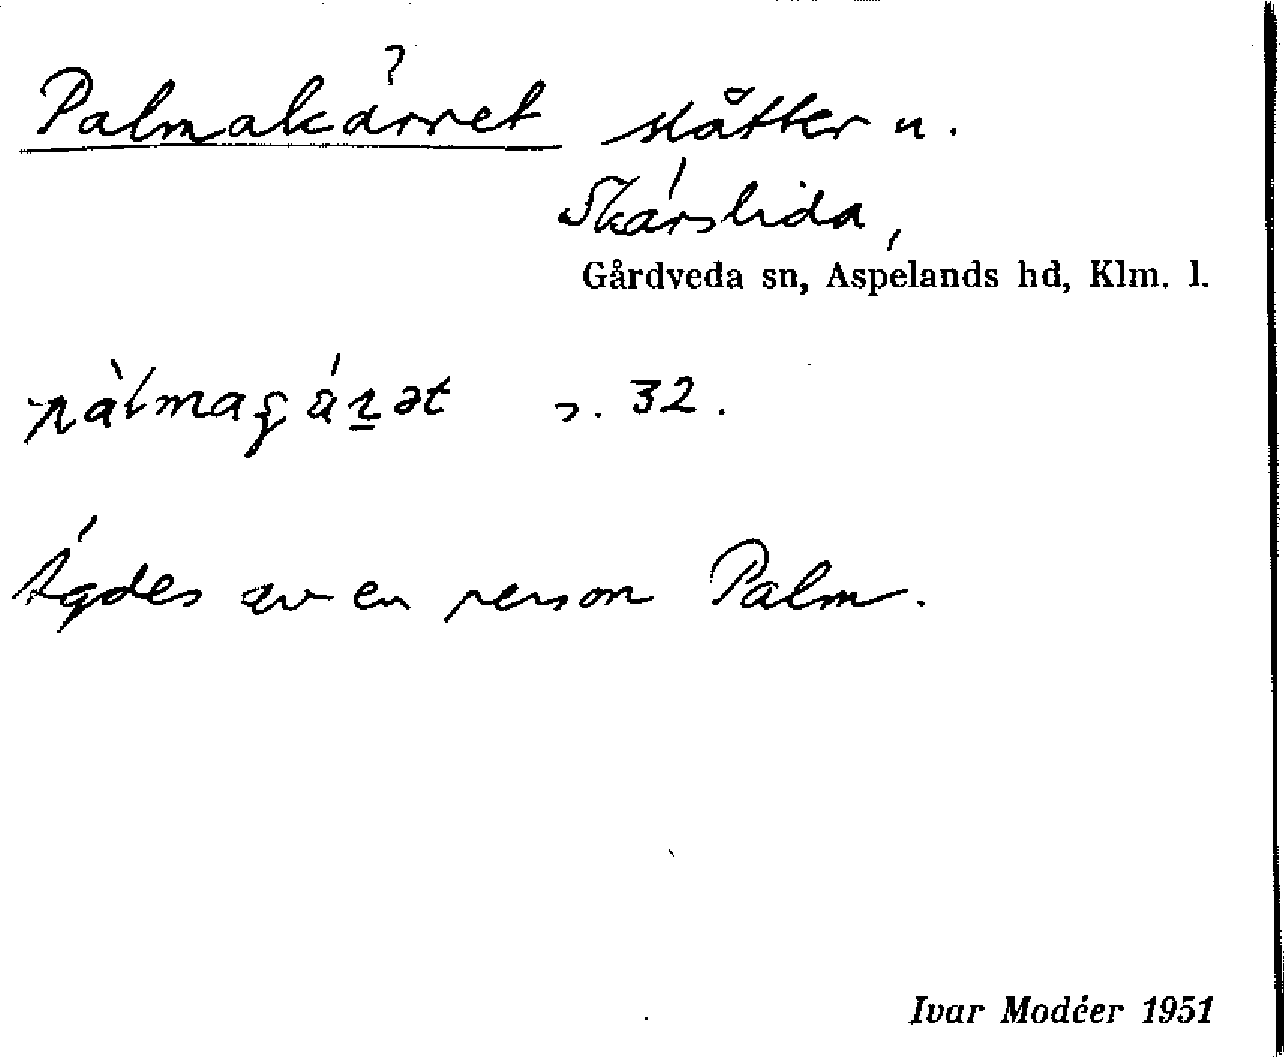 Palmakärret slåtter u.
Skärslida,
Gårdveda sn, Aspelands hd, Klm. l.
s. 32.
Ägdes av en person Palm.
Ivar Modéer 1951